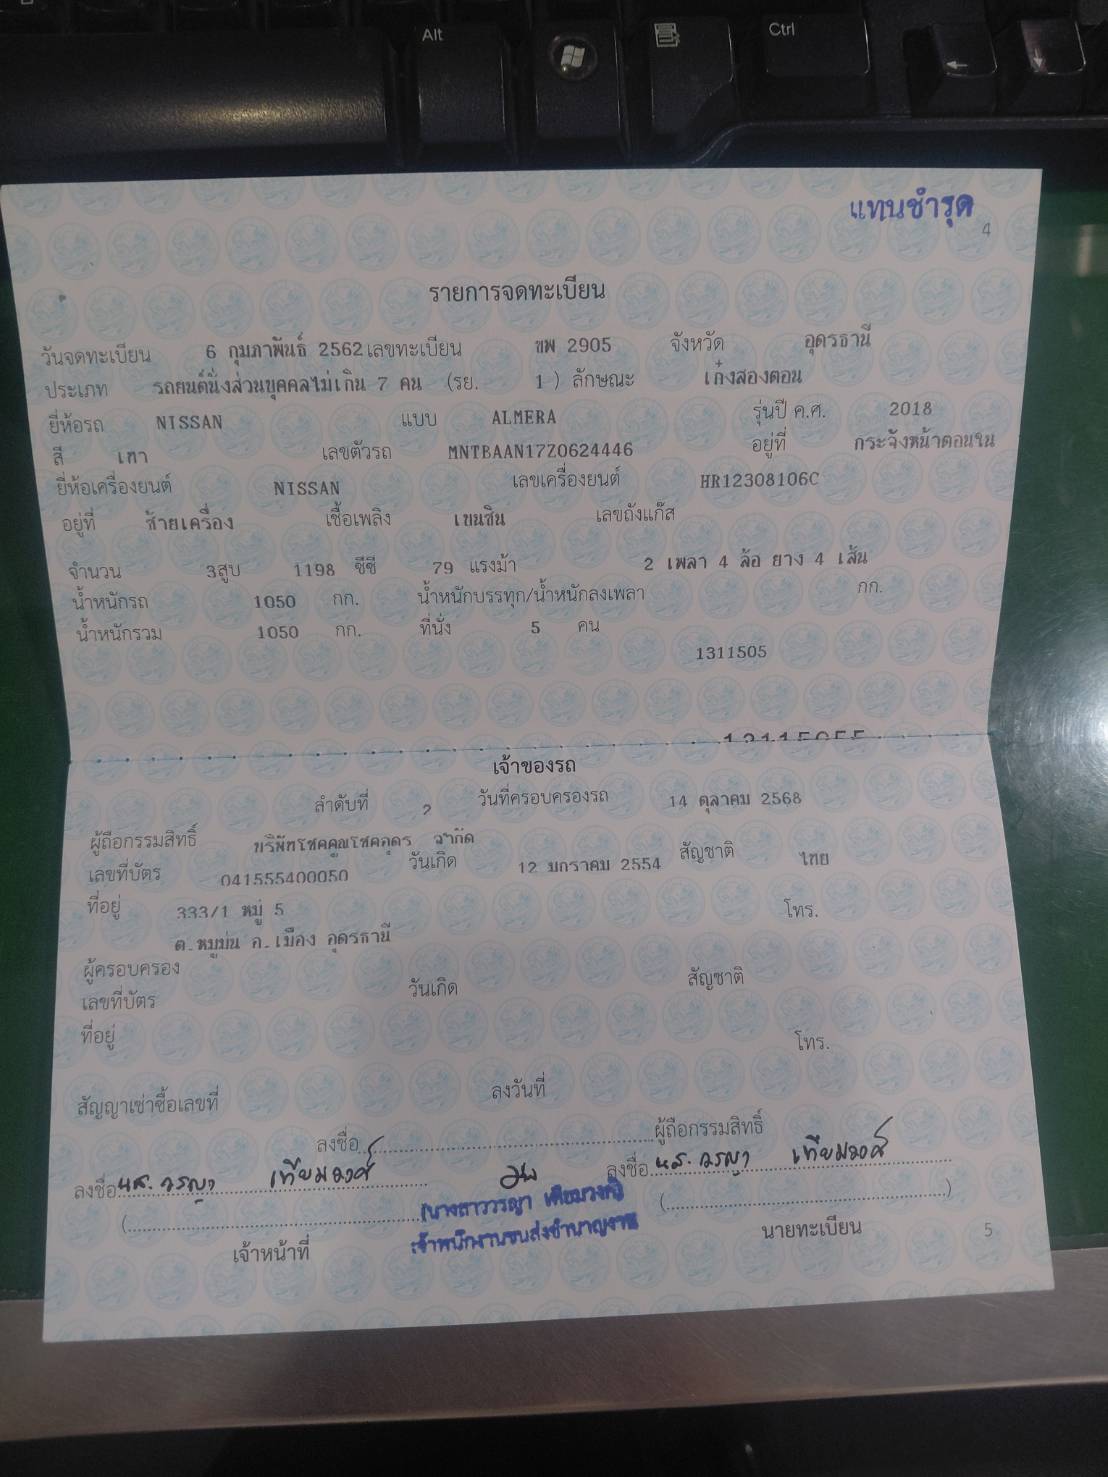 Alt
Ctrl
แทนชำรุด
4
รายการจดทะเบียน
วันจดทะเบียน 6 กุมภาพันธ์ 2562 เลขทะเบียน ขพ 2905 จังหวัด อุดรธานี
ประเภท รถยนต์นั่งส่วนบุคคลไม่เกิน 7 คน (รย. 1 ) ลักษณะ เก๋งสองตอน
ยี่ห้อรถ NISSAN แบบ ALMERA รุ่นปี ค.ศ. 2018
สี เทา เลขตัวรถ MNTBAAN17Z0624446 อยู่ที่ กระจังหน้าตอนใน
ยี่ห้อเครื่องยนต์ NISSAN เลขเครื่องยนต์ HR12308106C
อยู่ที่ ซ้ายเครื่อง เชื้อเพลิง เบนซิน เลขถังแก๊ส
จำนวน 3สูบ 1198 ซีซี 79 แรงม้า 2 เพลา 4 ล้อ ยาง 4 เส้น
น้ำหนักรถ 1050 กก. น้ำหนักบรรทุก/น้ำหนักลงเพลา กก.
น้ำหนักรวม 1050 กก. ที่นั่ง 5 คน
1311505
เจ้าของรถ
ลำดับที่ 2 วันที่ครอบครองรถ 14 ตุลาคม 2568
ผู้ถือกรรมสิทธิ์ บริษัทโชคคูณโชคอุดร จำกัด
เลขที่บัตร 041555400050 วันเกิด 12 มกราคม 2554 สัญชาติ ไทย
ที่อยู่ 333/1 หมู่ 5 โทร.
ต.หมูม่น อ.เมือง อุดรธานี
ผู้ครอบครอง
เลขที่บัตร วันเกิด สัญชาติ
ที่อยู่ โทร.
สัญญาเช่าซื้อเลขที่ ลงวันที่
ลงชื่อ ผู้ถือกรรมสิทธิ์
ลงชื่อ นส. วรญา เทียมวงศ์ ลงชื่อ นส. วรญา เทียมวงศ์
(นางสาววรญา เทียมวงศ์)
เจ้าพนักงานขนส่งชำนาญงาน
เจ้าหน้าที่ นายทะเบียน
5